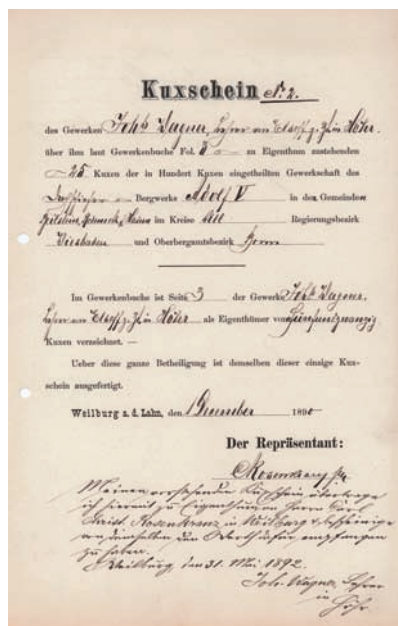 Kuxschein No. 2.
des Gewerken Joh. Wagner, Lehrer in Höhr.
über ihm laut Gewerkenbuche Fol. 3 zu Eigenthum zustehenden
25 Kuxen der in Hundert Kuxen eingetheilten Gewerkschaft des
Dachschiefer Bergwerks Adolf V in den Gemeinden
im Kreise Regierungsbezirk
Wiesbaden und Oberbergamtsbezirk Bonn
Im Gewerkenbuche ist Seite 3 der Gewerke Joh. Wagner,
Lehrer in Höhr als Eigenthümer von Fünfundzwanzig
Kuxen verzeichnet. —
Ueber diese ganze Betheiligung ist demselben dieser einzige Kux-
schein ausgefertigt.
Weilburg a. d. Lahn, den 1 December 1890
Der Repräsentant:
CRosenkranz
Meinen vorstehenden Kuxschein übertrage
ich hiermit zu Eigenthum an Herrn Carl
Christ. Rosenkranz in Weilburg & bescheinige
von demselben den Werth dafür empfangen
zu haben.
Weilburg den 31. Mai 1892.
Joh. Wagner, Lehrer
in
Höhr